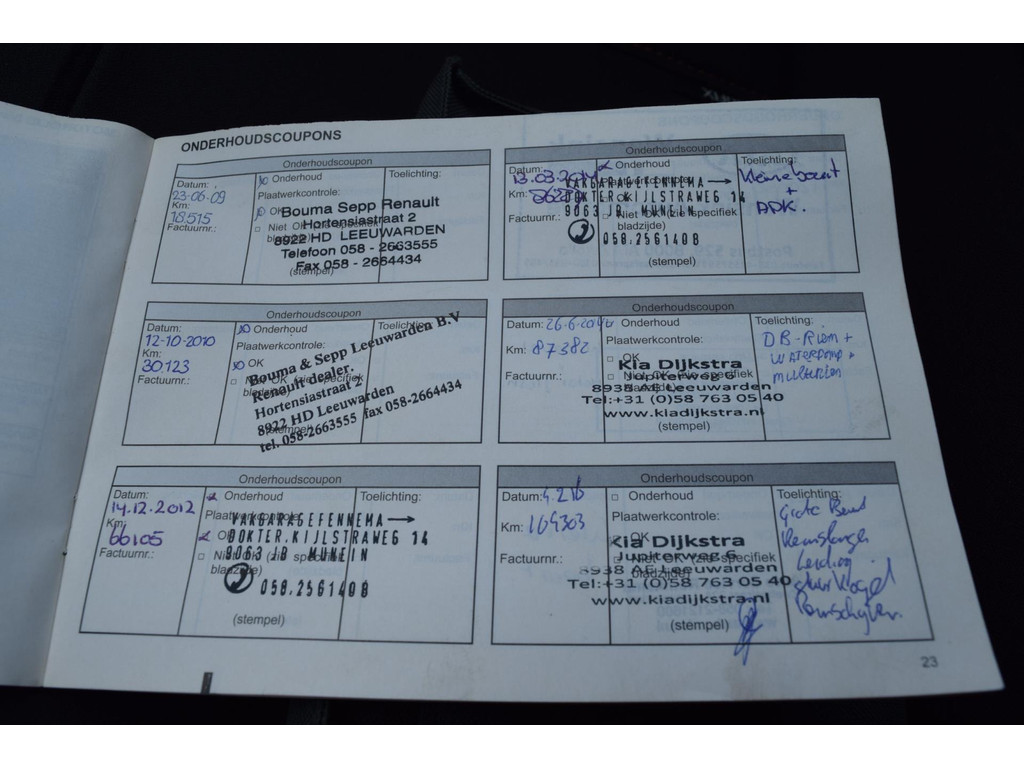 ONDERHOUDSCOUPONS
Onderhoudscoupon
Datum:
23-06-09
Km:
18.515
Factuurnr.:
Onderhoud
Plaatwerkcontrole:
OK
Niet OK
(stempel)
Toelichting:
Bouma Sepp Renault
Hortensiastraat 2
8922 HD LEEUWARDEN
Telefoon 058 - 2663555
Fax 058 - 2664434
Onderhoudscoupon
Datum:
12-10-2010
Km:
30.123
Factuurnr.:
Onderhoud
Plaatwerkcontrole:
OK
Toelichting:
Bouma & Sepp Leeuwarden B.V
Renault dealer.
Hortensiastraat 2
8922 HD Leeuwarden
tel. 058-2663555 fax 058-2664434
Onderhoudscoupon
Datum:
14.12.2012
Km:
66105
Factuurnr.:
Onderhoud
Plaatwerkcontrole:
OK
Niet OK (zie specifiek
bladzijde)
VAKGARAGEFENNEMA →
DOKTER.KIJLSTRAWEG 14
9063 JB MUNEIN
058.2561408
(stempel)
Toelichting:
Onderhoudscoupon
Datum:
13.03.2014
Km:
Factuurnr.:
Onderhoud
VAKGARAGEFENNEMA →
DOKTER.KIJLSTRAWEG 14
9063 JB MUNEIN
Niet OK (zie specifiek
bladzijde)
058.2561408
(stempel)
Toelichting:
Kleine beurt
+
APK.
Onderhoudscoupon
Datum: 26-6-2014
Km: 87382
Factuurnr.:
Onderhoud
Plaatwerkcontrole:
OK
Kia Dijkstra
Jupiterweg 6
8938 AE Leeuwarden
Tel:+31 (0)58 763 05 40
www.kiadijkstra.nl
(stempel)
Toelichting:
DB-Riem +
waterpomp +
multiriem
Onderhoudscoupon
Datum: 4.216
Km: 104303
Factuurnr.:
Onderhoud
Plaatwerkcontrole:
OK
Niet OK (zie specifiek
bladzijde)
Kia Dijkstra
Jupiterweg 6
8938 AE Leeuwarden
Tel:+31 (0)58 763 05 40
www.kiadijkstra.nl
(stempel)
Toelichting:
Grote Beurt
Remslangen
Leiding
Remschijven
23